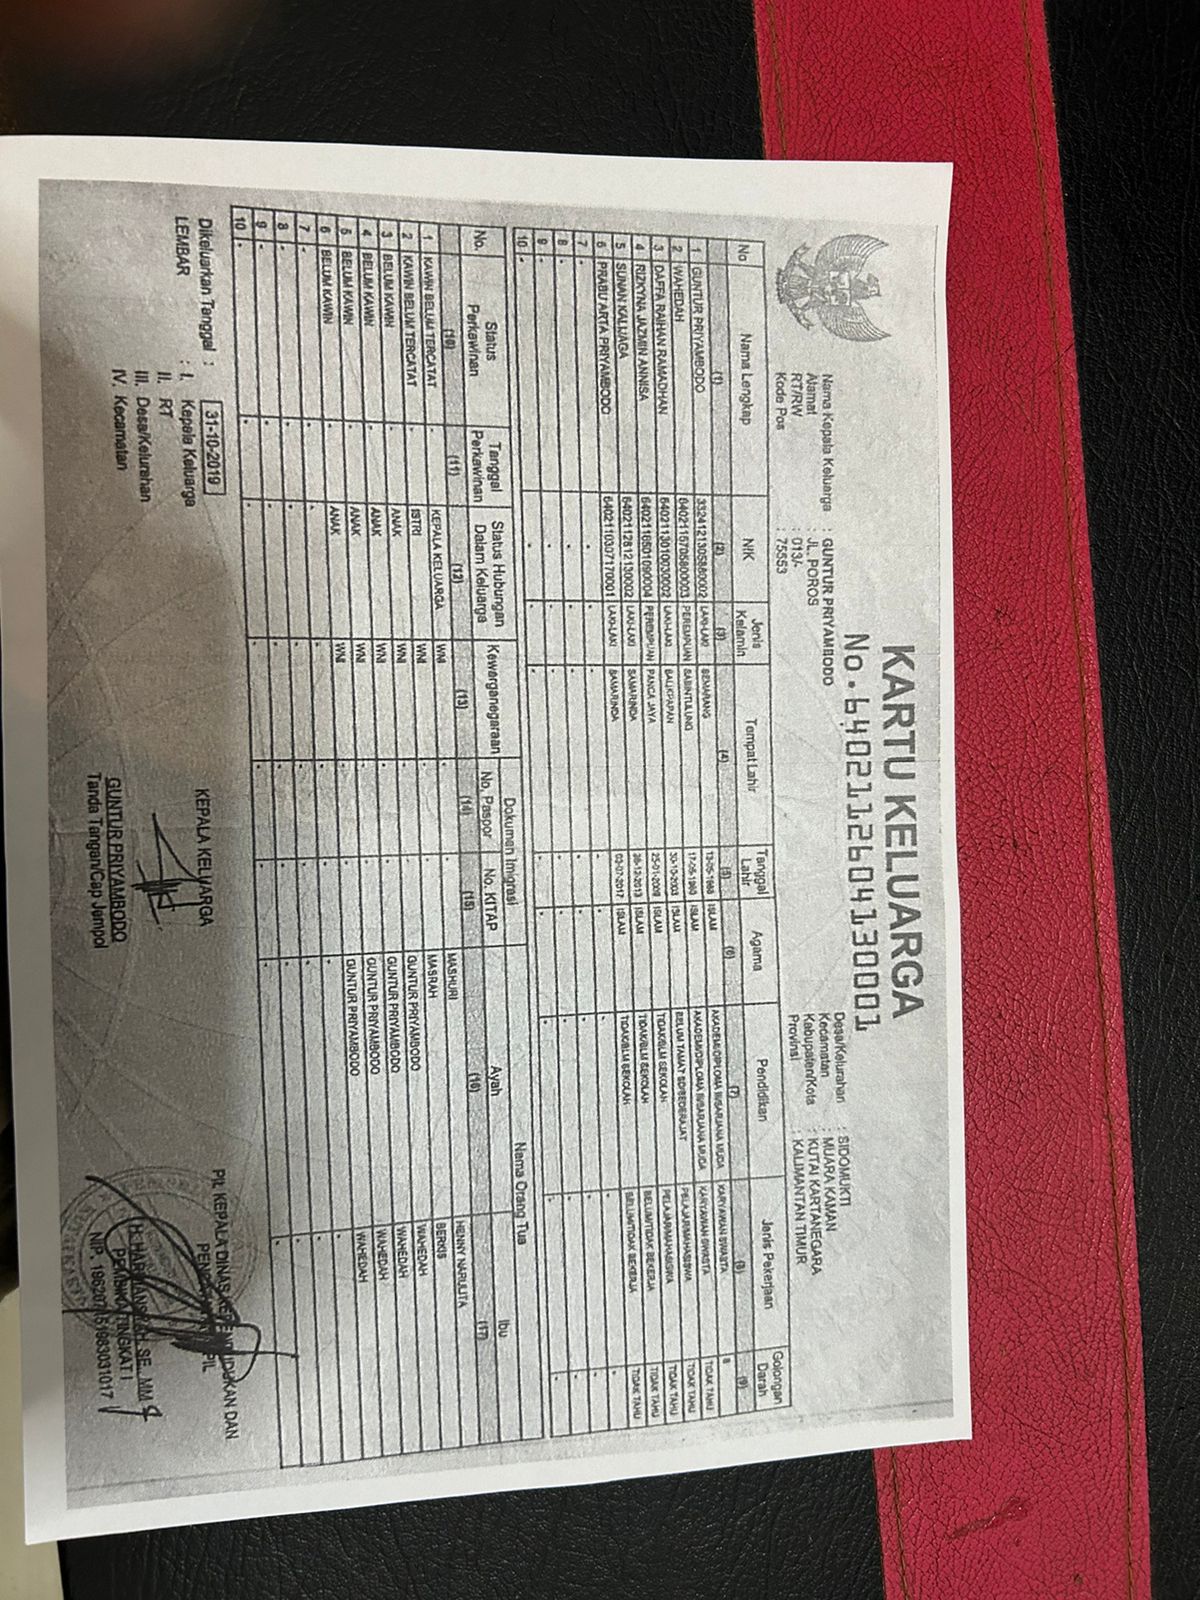 KARTU KELUARGA
No. 6402112604130001
Nama Kepala Keluarga : GUNTUR PRIYAMBODO
Alamat : JL. POROS
RT/RW : 013/-
Kode Pos : 75553
Desa/Kelurahan : SIDOMUKTI
Kecamatan : MUARA KAMAN
Kabupaten/Kota : KUTAI KARTANEGARA
Provinsi : KALIMANTAN TIMUR
No Nama Lengkap NIK Jenis Kelamin Tempat Lahir Tanggal Lahir Agama Pendidikan Jenis Pekerjaan Golongan Darah
(1) (2) (3) (4) (5) (6) (7) (8) (9)
1 GUNTUR PRIYAMBODO LAKI-LAKI SEMARANG ISLAM AKADEMI/DIPLOMA III/SARJANA MUDA KARYAWAN SWASTA TIDAK TAHU
2 WAHEDAH PEREMPUAN SABINTULUNG ISLAM AKADEMI/DIPLOMA III/SARJANA MUDA KARYAWAN SWASTA TIDAK TAHU
3 DAFFA RAIHAN RAMADHAN LAKI-LAKI BALIKPAPAN 30-10-2003 ISLAM BELUM TAMAT SD/SEDERAJAT PELAJAR/MAHASISWA TIDAK TAHU
4 RIZKYNA JAZMIN ANNISA PEREMPUAN PANCA JAYA ISLAM TIDAK/BLM SEKOLAH PELAJAR/MAHASISWA TIDAK TAHU
5 SUNAN KALIJAGA 6402112812130002 LAKI-LAKI SAMARINDA 28-12-2013 ISLAM TIDAK/BLM SEKOLAH BELUM/TIDAK BEKERJA TIDAK TAHU
6 PRABU ARTA PRIYAMBODO 6402110307170001 LAKI-LAKI SAMARINDA 03-07-2017 ISLAM TIDAK/BLM SEKOLAH BELUM/TIDAK BEKERJA TIDAK TAHU
7 -
8 -
9 -
10 -
No. Status Perkawinan Tanggal Perkawinan Status Hubungan Dalam Keluarga Kewarganegaraan Dokumen Imigrasi Nama Orang Tua
No. Paspor No. KITAP Ayah Ibu
(10) (11) (12) (13) (14) (15) (16) (17)
1 KAWIN BELUM TERCATAT - KEPALA KELUARGA WNI - - MASHURI HENNY NARULITA
2 KAWIN BELUM TERCATAT - ISTRI WNI - - MASRAH BERKIS
3 BELUM KAWIN - ANAK WNI - - GUNTUR PRIYAMBODO WAHEDAH
4 BELUM KAWIN - ANAK WNI - - GUNTUR PRIYAMBODO WAHEDAH
5 BELUM KAWIN - ANAK WNI - - GUNTUR PRIYAMBODO WAHEDAH
6 BELUM KAWIN - ANAK WNI - - GUNTUR PRIYAMBODO WAHEDAH
7 -
8 -
9 -
10 -
Dikeluarkan Tanggal : 31-10-2019
LEMBAR : I. Kepala Keluarga
II. RT
III. Desa/Kelurahan
IV. Kecamatan
KEPALA KELUARGA
GUNTUR PRIYAMBODO
Tanda Tangan/Cap Jempol
Plt. KEPALA DINAS KEPENDUDUKAN DAN
SE, MM
PEMBINA TINGKAT I
NIP.